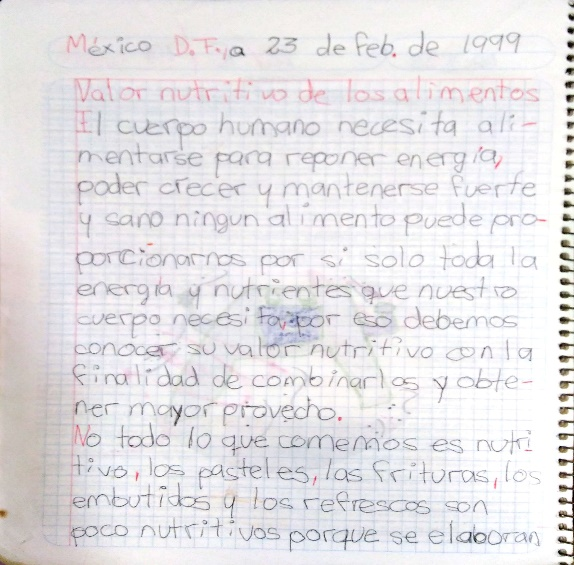 México D.F., a 23 de feb. de 1999
Valor nutritivo de los alimentos
El cuerpo humano necesita ali-
mentarse para reponer energía,
poder crecer y mantenerse fuerte
y sano ningun alimento puede pro-
porcionarnos por si solo toda la
energía y nutrientes que nuestro
cuerpo necesita, por eso debemos
conocer su valor nutritivo con la
finalidad de combinarlos y obte-
ner mayor provecho.
No todo lo que comemos es nutri
tivo, los pasteles, las frituras, los
embutidos y los refrescos son
poco nutritivos porque se elaboran